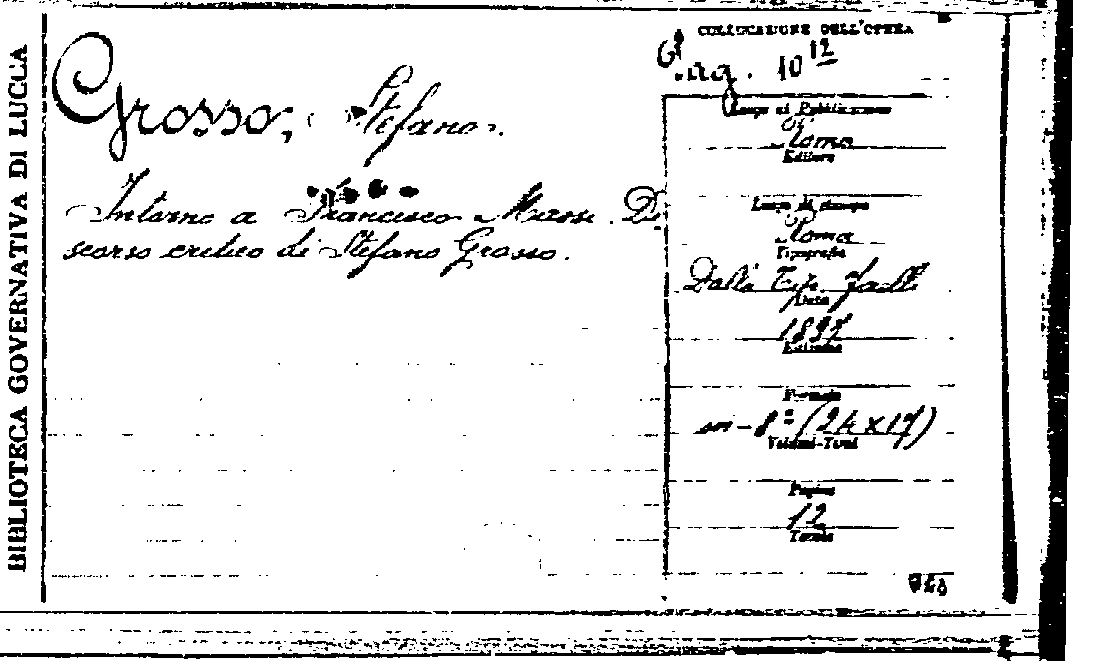 BIBLIOTECA GOVERNATIVA DI LUCCA
Grosso, Stefano.
Intorno a Francesco Massi. Di-
scorso critico di Stefano Grosso.
COLLOCAZIONE DELL'OPERA
10 12
Luogo di Pubblicazione
Roma
Editore
Luogo di stampa
Roma
Tipografia
Dalla Tip.
Data
Edizione
Formato
in-8º (24x17)
Volumi-Tomi
Pagine
12
Tavole